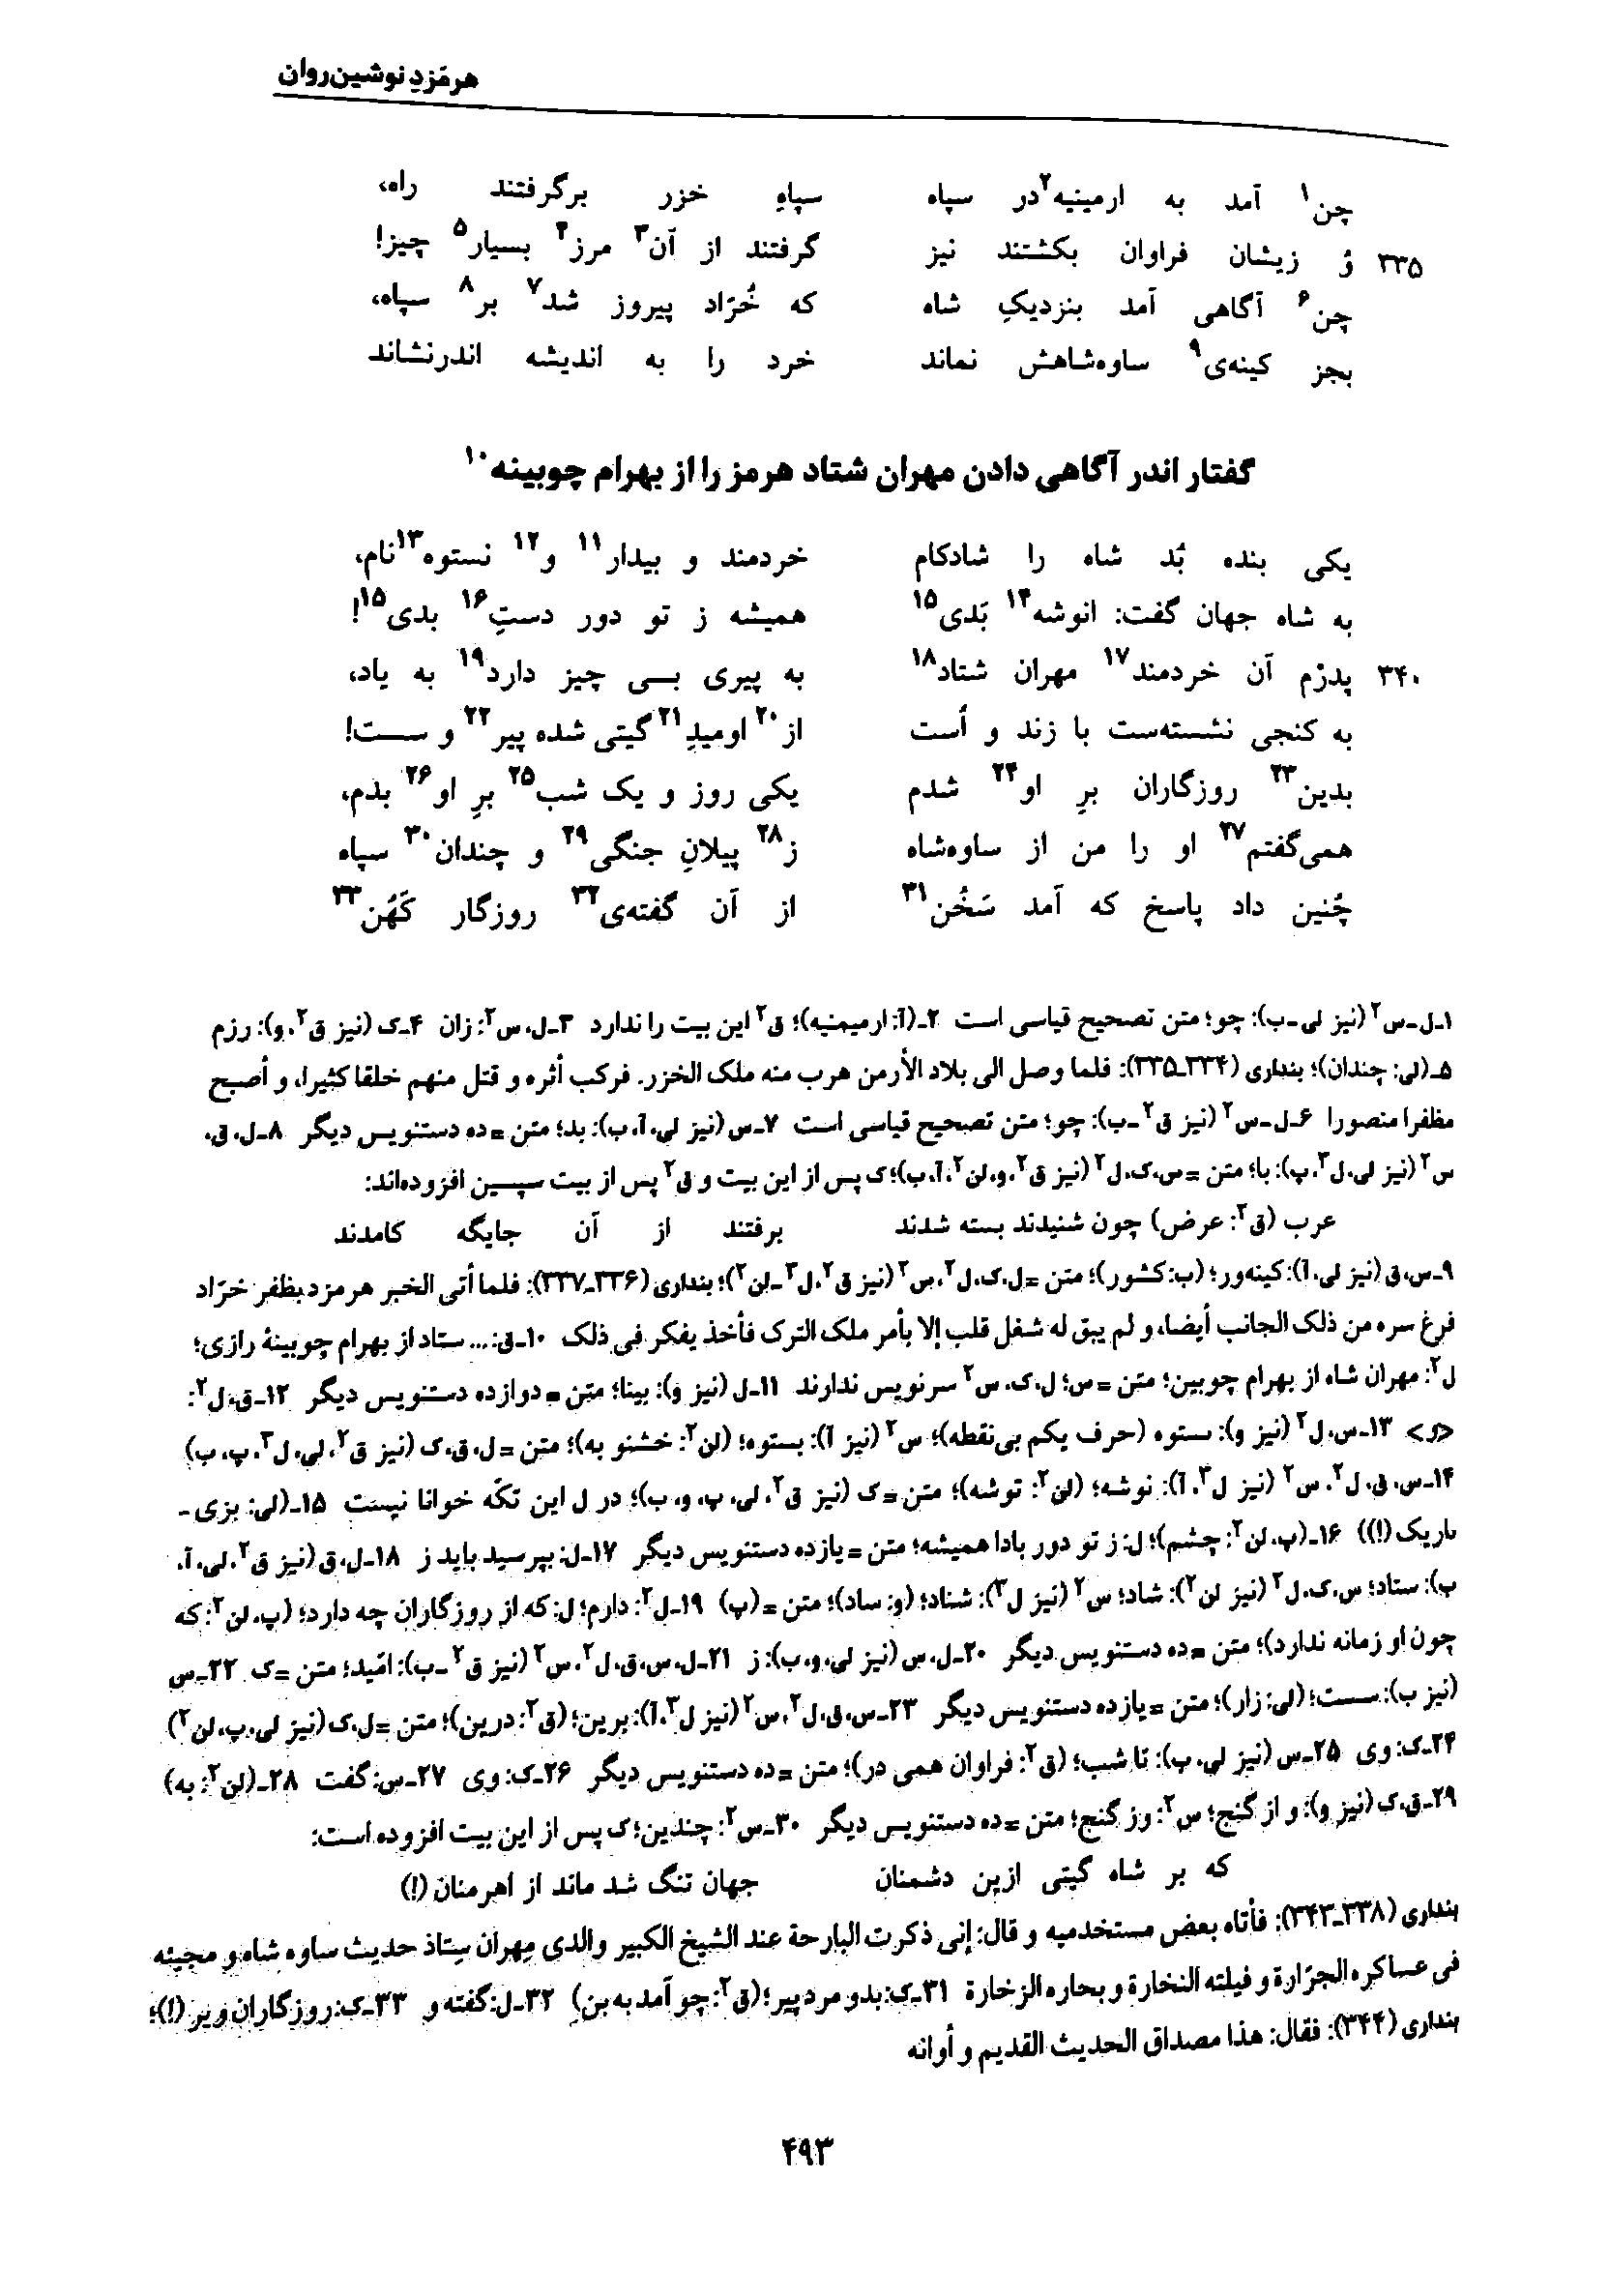 هرمَزدِ نوشین‌روان
چن۱ آمد به ارمینیه۲ در سپاه سپاهِ خزر برگرفتند راه،
۳۳۵ وُ زیشان فراوان بکشتند نیز گرفتند از آن۳ مرز۴ بسیار۵ چیز!
چن۶ آگاهی آمد بنزدیکِ شاه که خُرّاد پیروز شد۷ بر۸ سپاه،
بجز کینه‌ی۹ ساوه‌شاهش نماند خرد را به اندیشه اندرنشاند
گفتار اندر آگاهی دادن مهران شتاد هرمز را از بهرام چوبینه۱۰
یکی بنده بُد شاه را شادکام خردمند و بیدار۱۱ و۱۲ نستوه۱۳ نام،
به شاه جهان گفت: انوشه۱۴ بَدی۱۵ همیشه ز تو دور دستِ۱۶ بدی۱۵!
۳۴۰ پدرْم آن خردمند۱۷ مهران شتاد۱۸ به پیری بسی چیز دارد۱۹ به یاد،
به کنجی نشسته‌ست با زند و اُست از۲۰ اومیدِ۲۱ گیتی شده پیر۲۲ و سست!
بدین۲۳ روزگاران برِ او۲۴ شدم یکی روز و یک شب۲۵ برِ او۲۶ بدم،
همی‌گفتم۲۷ او را من از ساوه‌شاه ز۲۸ پیلانِ جنگی۲۹ و چندان۳۰ سپاه
چُنین داد پاسخ که آمد سَخُن۳۱ از آن گفته‌ی۳۲ روزگار کَهُن۳۳
۱ـ ل ـ س۲ (نیز لی ـ ب): چو؛ متن تصحیح قیاسی است ۲ـ (آ: ارمیمنیه)؛ ق۲ این بیت را ندارد ۳ـ ل، س۲: زان ۴ـ ک (نیز ق۲، و): رزم
۵ـ (لی: چندان)؛ بنداری (۳۳۴ـ۳۳۵): فلما وصل الی بلاد الأرمن هرب منه ملک الخزر. فرکب أثره و قتل منهم خلقا کثیرا، و أصبح
مظفرا منصورا ۶ـ ل ـ س۲ (نیز ق۲ ـ ب): چو؛ متن تصحیح قیاسی است ۷ـ س (نیز لی، آ، ب): بد؛ متن = ده دستنویس دیگر ۸ـ ل، ق،
س۲ (نیز لی، ل۳، پ): با؛ متن = س، ک، ل۲ (نیز ق۲، و، لن۲، آ، ب)؛ ک پس از این بیت و ق۲ پس از بیت سپسین افزوده‌اند:
عرب (ق۲: عرض) چون شنیدند بسته شدند برفتند از آن جایگه کامدند
۹ـ س، ق (نیز لی، آ): کینه‌ور؛ (ب: کشور)؛ متن = ل، ک، ل۲، س۲ (نیز ق۲، ل۳ ـ لن۲)؛ بنداری (۳۳۶ـ۳۳۷): فلما أتی الخبر هرمزد بظفر خرّاد
فرغ سره من ذلک الجانب أیضا، و لم یبق له شغل قلب إلا بأمر ملک الترک فأخذ یفکر فی ذلک ۱۰ـ ق: ... ستاد از بهرام چوبینهٔ رازی؛
ل۲: مهران شاه از بهرام چوبین؛ متن = س؛ ل، ک، س۲ سرنویس ندارند ۱۱ـ ل (نیز و): بینا؛ متن = دوازده دستنویس دیگر ۱۲ـ ق، ل۲:
<و> ۱۳ـ س، ل۲ (نیز و): ستوه (حرف یکم بی‌نقطه)؛ س۲ (نیز آ): بستوه؛ (لن۲: خشنو به)؛ متن = ل، ق، ک (نیز ق۲، لی، ل۳، پ، ب)
۱۴ـ س، ق، ل۲، س۲ (نیز ل۳، آ): نوشه؛ (لن۲: توشه)؛ متن = ک (نیز ق۲، لی، پ، و، ب)؛ در ل این تکّه خوانا نیست ۱۵ـ (لی: بزی ـ
تاریک (!)) ۱۶ـ (پ، لن۲: چشم)؛ ل: ز تو دور بادا همیشه؛ متن = یازده دستنویس دیگر ۱۷ـ ل: بپرسید باید ز ۱۸ـ ل، ق (نیز ق۲، لی، آ،
ب): ستاد؛ س، ک، ل۲ (نیز لن۲): شاد؛ س۲ (نیز ل۳): شناد؛ (و: ساد)؛ متن = (پ) ۱۹ـ ل۲: دارم؛ ل: که از روزگاران چه دارد؛ (پ، لن۲: که
چون او زمانه ندارد)؛ متن = ده دستنویس دیگر ۲۰ـ ل، س (نیز لی، و، ب): ز ۲۱ـ ل، س، ق، ل۲، س۲ (نیز ق۲ ـ ب): امّید؛ متن = ک ۲۲ـ س
(نیز ب): سست؛ (لی: زار)؛ متن = یازده دستنویس دیگر ۲۳ـ س، ق، ل۲، س۲ (نیز ل۳، آ): برین؛ (ق۲: درین)؛ متن = ل، ک (نیز لی، پ، لن۲)
۲۴ـ ک: وی ۲۵ـ س (نیز لی، پ): تا شب؛ (ق۲: فراوان همی در)؛ متن = ده دستنویس دیگر ۲۶ـ ک: وی ۲۷ـ س: گفت ۲۸ـ (لن۲: به)
۲۹ـ ق، ک (نیز و): و از گنج؛ س۲: وز گنج؛ متن = ده دستنویس دیگر ۳۰ـ س۲: چندین؛ ک پس از این بیت افزوده است:
که بر شاه گیتی ازین دشمنان جهان تنگ شد ماند از اهرمنان (!)
بنداری (۳۳۸ـ۳۴۳): فأتاه بعض مستخدمیه و قال: إنی ذکرت البارحة عند الشیخ الکبیر والدی مِهران سِتاذ حدیث ساوه شاه و مجیئه
فی عساکره الجرّارة و فیلته النخارة و بحاره الزخارة ۳۱ـ ک: بدو مرد پیر؛ (ق۲: چو آمد به بن) ۳۲ـ ل: گفته و ۳۳ـ ک: روزگاران ویر (!)؛
بنداری (۳۴۴): فقال: هذا مصداق الحدیث القدیم و أوانه
۴۹۳